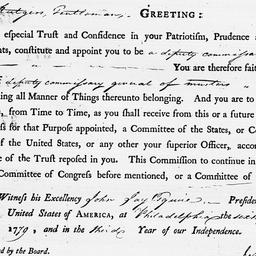 Rutgers, Gentleman. GREETING:
e especial Trust and Confidence in your Patriotism, Prudence a
ents, constitute and appoint you to be a deputy commissar
You are therefore faith
f deputy commissary general of musters
ing all Manner of Things thereunto belonging. And you are to
, from Time to Time, as you shall receive from this or a future
ss for that Purpose appointed, a Committee of the States, or C
of the United States, or any other your superior Officer, accord
e of the Trust reposed in you. This Commission to continue in
Committee of Congress before mentioned, or a Committee of
Witness his Excellency John Jay Esquire Preside
United States of AMERICA, at Philadelphia the
1779, and in the third Year of our Independence.
d by the Board.